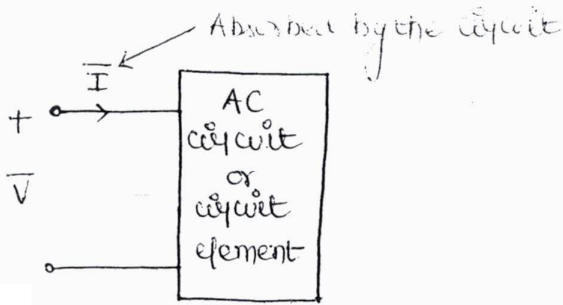 Absorbed by the circuit
I
+
AC
circuit
V
or
circuit
element